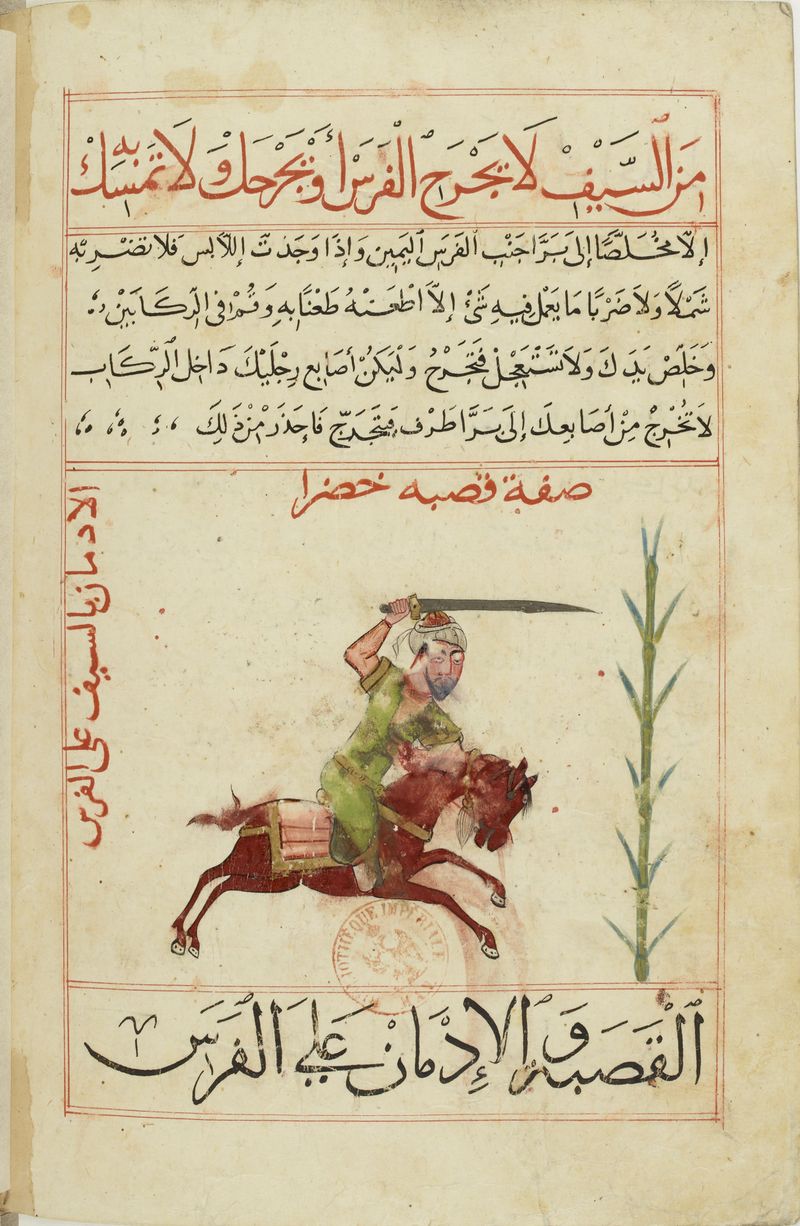 مَنَ السَّيْفِ لَا يَجْرَحُ الْفَرَسْ أَوْ يَجْرَحَكَ وَلَا تَمْسِكْ بِهِ
إِلَّا مُخَلَّصًا إِلَى بَرَّا جَنْبِ الْفَرَسِ الْيَمِينِ وَإِذَا وَجَدْتَ اللَّابِس فَلَا تَضْرِبْهُ
شَمْلًا وَلَا ضَرْبًا مَا يَعْمَلُ فِيهِ شَئْ إِلَّا اطْعَنْهُ طَعْنًا بِهِ وَقُمْ فِي الرِّكَابَيْنْ
وَخَلِّصْ يَدَكَ وَلَا تَسْتَعْجِلْ فَتَجْرَحْ وَلْيَكُنْ أَصَابِع رِجْلَيْكَ دَاخِلَ الرِّكَابِ
لَا تُخْرِجْ مِنْ أَصَابِعِكَ إِلَى بَرَّا طَرْف فَيَتَجَرَّح فَاحْذَرْ مِنْ ذَلِكَ
صفة قصبه خضرا
الادمان بالسيف على الفرس
الْقَصَبَه وَالإِدْمَانْ عَلَى الْفَرَسِ
BIBLIOTHÈQUE IMPÉRIALE